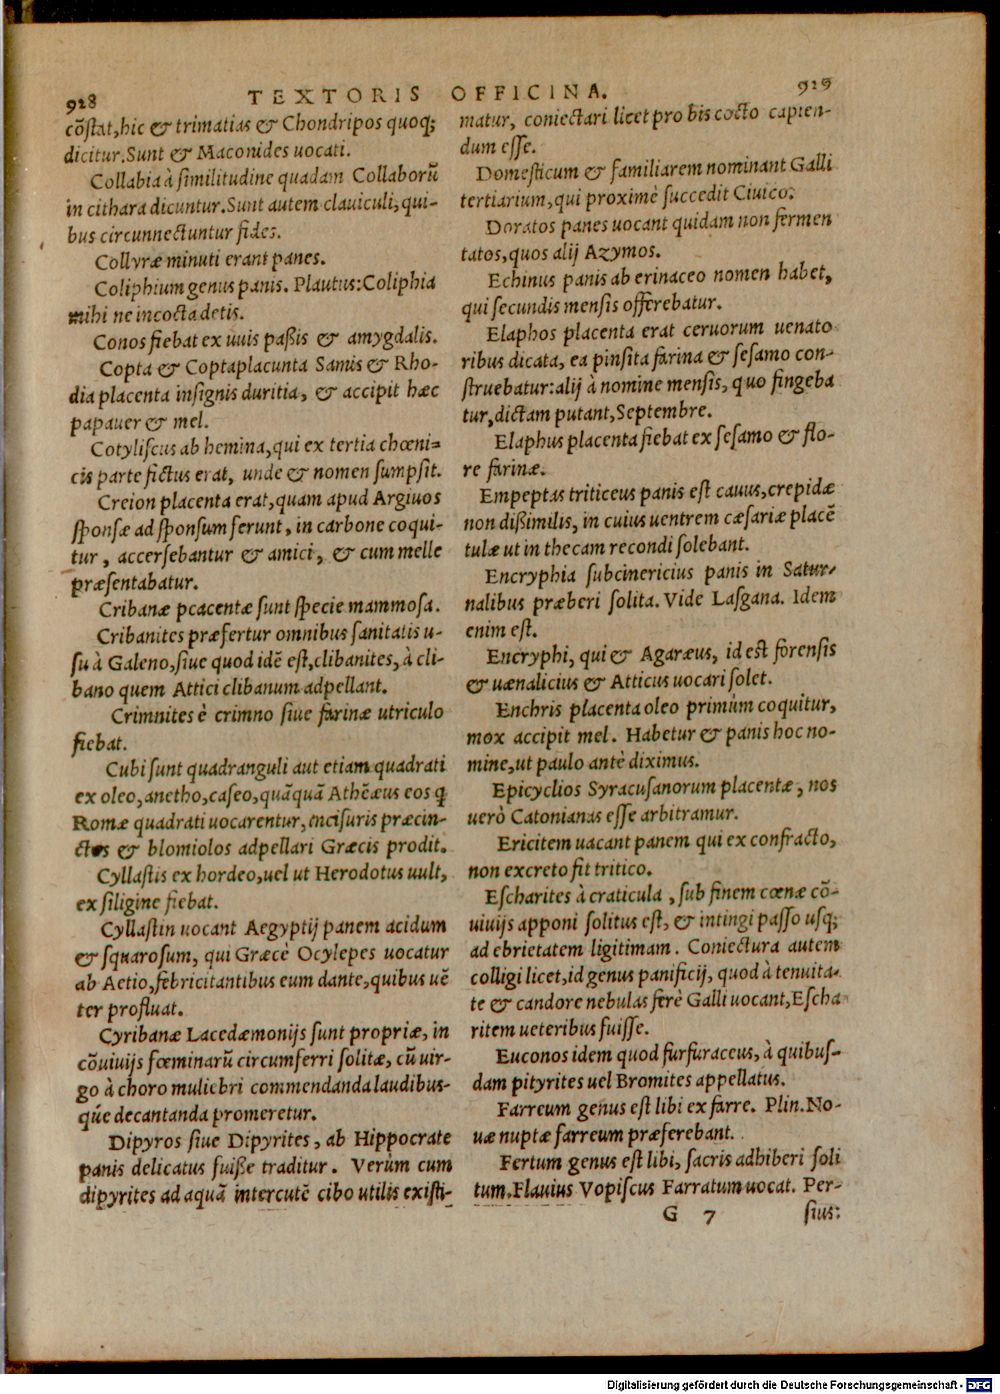 928 TEXTORIS OFFICINA. 929
cõstat, hic & trimatias & Chondripos quoq;
dicitur. Sunt & Maconides uocati.
Collabia à similitudine quadam Collaborũ
in cithara dicuntur. Sunt autem clauiculi, qui-
bus circunnectuntur fides.
Collyræ minuti erant panes.
Coliphium genus panis. Plautus: Coliphia
mihi ne incocta detis.
Conos fiebat ex uuis paßis & amygdalis.
Copta & Coptaplacunta Samis & Rho-
dia placenta insignis duritia, & accipit hæc
papauer & mel.
Cotyliscus ab hemina, qui ex tertia chœni-
cis parte fictus erat, unde & nomen sumpsit.
Creion placenta erat, quam apud Argiuos
sponsæ ad sponsum ferunt, in carbone coqui-
tur, accersebantur & amici, & cum melle
præsentabatur.
Cribanæ pcacentæ sunt specie mammosa.
Cribanites præfertur omnibus sanitatis u-
su à Galeno, siue quod idẽ est, clibanites, à cli-
bano quem Attici clibanum adpellant.
Crimnites è crimno siue farinæ utriculo
fiebat.
Cubi sunt quadranguli aut etiam quadrati
ex oleo, anetho, caseo, quãquã Athẽæus eos q̃
Romæ quadrati uocarentur, incisuris præcin-
ctos & blomiolos adpellari Græcis prodit.
Cyllastis ex hordeo, uel ut Herodotus uult,
ex siligine fiebat.
Cyllastin uocant Aegyptij panem acidum
& squarosum, qui Græcè Ocylepes uocatur
ab Aetio, febricitantibus eum dante, quibus uẽ
ter profluat.
Cyribanæ Lacedæmonijs sunt propriæ, in
cõuiuijs fœminarũ circumferri solitæ, cũ uir-
go à choro muliebri commendanda laudibus-
qúe decantanda promeretur.
Dipyros siue Dipyrites, ab Hippocrate
panis delicatus fuiße traditur. Verùm cum
dipyrites ad aquã intercutẽ cibo utilis existi-
matur, coniectari licet pro bis cocto capien-
dum esse.
Domesticum & familiarem nominant Galli
tertiarium, qui proximè succedit Ciuico.
Doratos panes uocant quidam non fermen
tatos, quos alij Azymos.
Echinus panis ab erinaceo nomen habet,
qui secundis mensis offerebatur.
Elaphos placenta erat ceruorum uenato
ribus dicata, ea pinsita farina & sesamo con-
struebatur: alij à nomine mensis, quo fingeba
tur, dictam putant, Septembre.
Elaphus placenta fiebat ex sesamo & flo-
re farinæ.
Empeptas triticeus panis est cauus, crepidæ
non dißimilis, in cuius uentrem cæsariæ placẽ
tulæ ut in thecam recondi solebant.
Encryphia subcinericius panis in Satur-
nalibus præberi solita. Vide Lasgana. Idem
enim est.
Encryphi, qui & Agaræus, id est forensis
& uænalicius & Atticus uocari solet.
Enchris placenta oleo primùm coquitur,
mox accipit mel. Habetur & panis hoc no-
mine, ut paulo antè diximus.
Epicyclios Syracusanorum placentæ, nos
uerò Catonianas esse arbitramur.
Ericitem uacant panem qui ex confracto,
non excreto fit tritico.
Escharites à craticula, sub finem cœnæ cõ-
uiuijs apponi solitus est, & intingi passo usq;
ad ebrietatem ligitimam. Coniectura autem
colligi licet, id genus panificij, quod à tenuita-
te & candore nebulas ferè Galli uocant, Escha
ritem ueteribus fuisse.
Euconos idem quod furfuraceus, à quibus-
dam pityrites uel Bromites appellatus.
Farreum genus est libi ex farre. Plin. No-
uæ nuptæ farreum præferebant.
Fertum genus est libi, sacris adhiberi soli
tum. Flauius Vopiscus Farratum uocat. Per-
G 7 sius:
Digitalisierung gefördert durch die Deutsche Forschungsgemeinschaft - DFG